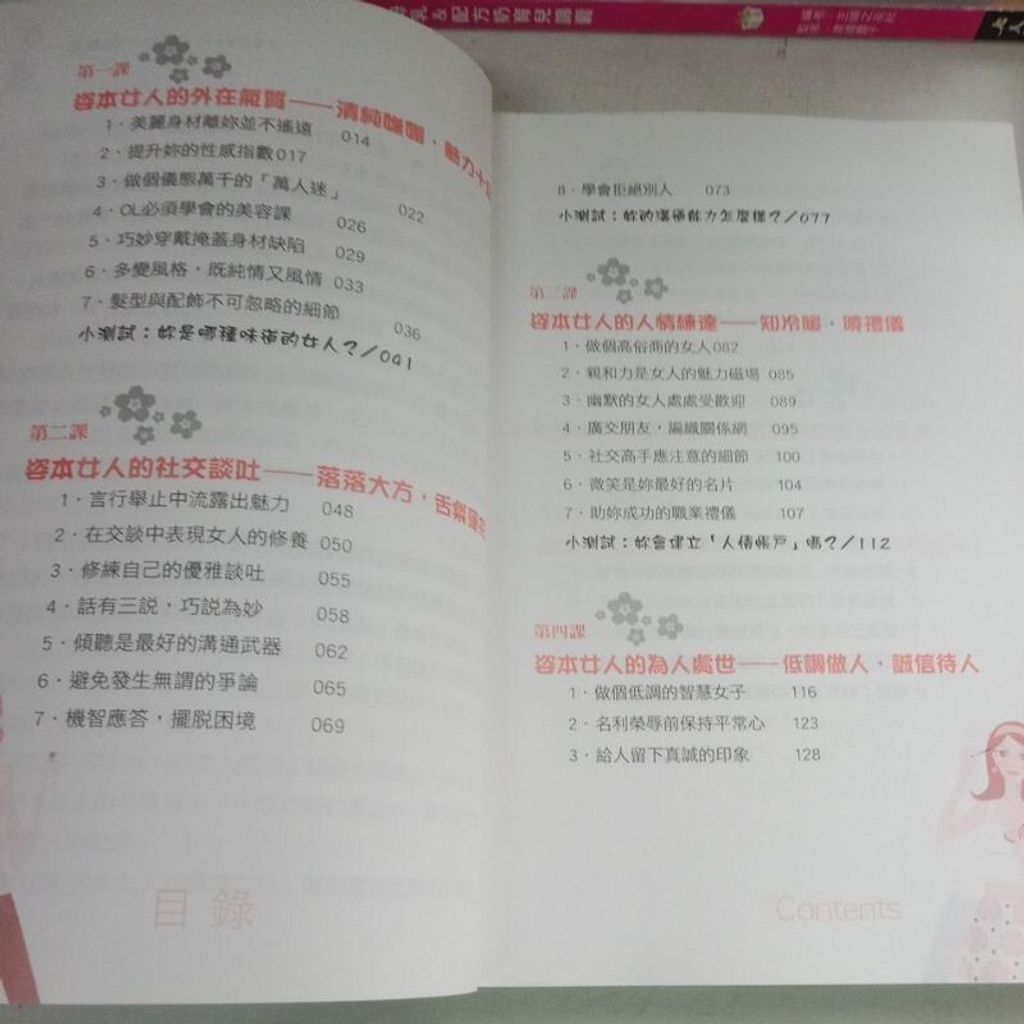 &配方奶育兒
第一課
姿本女人的外在氣質——清純嫵媚，魅力十
1．美麗身材離妳並不遙遠 014
2．提升妳的性感指數017
3．做個儀態萬千的「萬人迷」 022
4．OL必須學會的美容課 026
5．巧妙穿戴掩蓋身材缺陷 029
6．多變風格，既純情又風情 033
7．髮型與配飾不可忽略的細節 036
小測試：妳是哪種味道的女人？/041
第二課
姿本女人的社交談吐——落落大方，舌粲蓮花
1．言行舉止中流露出魅力 048
2．在交談中表現女人的修養 050
3．修練自己的優雅談吐 055
4．話有三說，巧說為妙 058
5．傾聽是最好的溝通武器 062
6．避免發生無謂的爭論 065
7．機智應答，擺脫困境 069
目錄
8．學會拒絕別人 073
小測試：妳的溝通能力怎麼樣？/077
第三課
姿本女人的人情練達——知冷暖，曉禮儀
1．做個高俗商的女人082
2．親和力是女人的魅力磁場 085
3．幽默的女人處處受歡迎 089
4．廣交朋友，編織關係網 095
5．社交高手應注意的細節 100
6．微笑是妳最好的名片 104
7．助妳成功的職業禮儀 107
小測試：妳會建立「人情帳戶」嗎？/112
第四課
姿本女人的為人處世——低調做人，誠信待人
1．做個低調的智慧女子 116
2．名利榮辱前保持平常心 123
3．給人留下真誠的印象 128
Contents